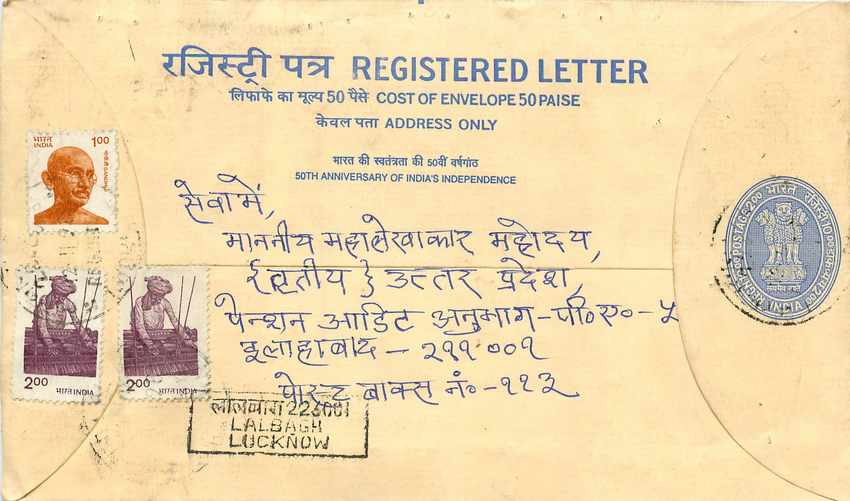 रजिस्ट्री पत्र REGISTERED LETTER
लिफाफे का मूल्य 50 पैसे COST OF ENVELOPE 50 PAISE
केवल पता ADDRESS ONLY
भारत की स्वतंत्रता की 50वीं वर्षगांठ
50TH ANNIVERSARY OF INDIA'S INDEPENDENCE
भारत 1.00
INDIA
सेवा में,
माननीय महालेखाकार महोदय,
{तृतीय} उत्तर प्रदेश,
पेन्शन आडिट अनुभाग-पी०ए०-५
इलाहाबाद - २११००१
पोस्ट बाक्स नं०-११३
2.00 भारत INDIA
2.00 भारत INDIA
POSTAGE 2.00 भारत
INDIA
लालबाग 226001
LALBAGH
LUCKNOW